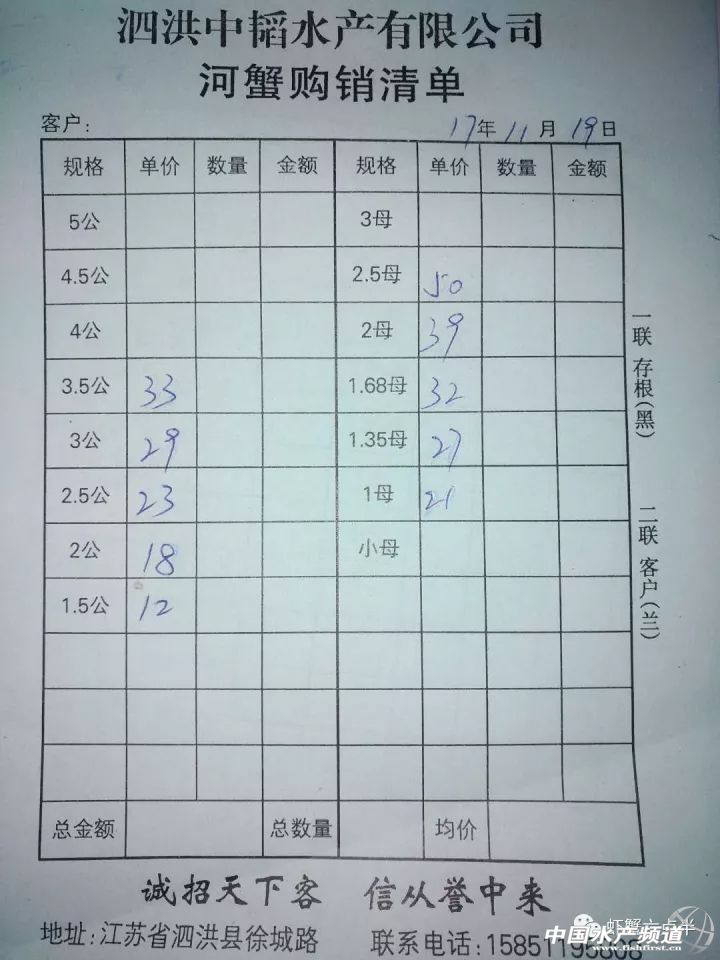 泗洪中韬水产有限公司
河蟹购销清单
客户: 17年11月19日
规格 单价 数量 金额 规格 单价 数量 金额
5公 3母
4.5公 2.5母 50
4公 2母 39
3.5公 33 1.68母 32
3公 29 1.35母 27
2.5公 23 1母 21
2公 18 小母
1.5公 12
总金额 总数量 均价
一联 存根(黑)
二联 客户(兰)
诚招天下客 信从誉中来
地址:江苏省泗洪县徐城路 联系电话:15851195808
虾蟹六点半
中国水产频道
www.fishfirst.cn